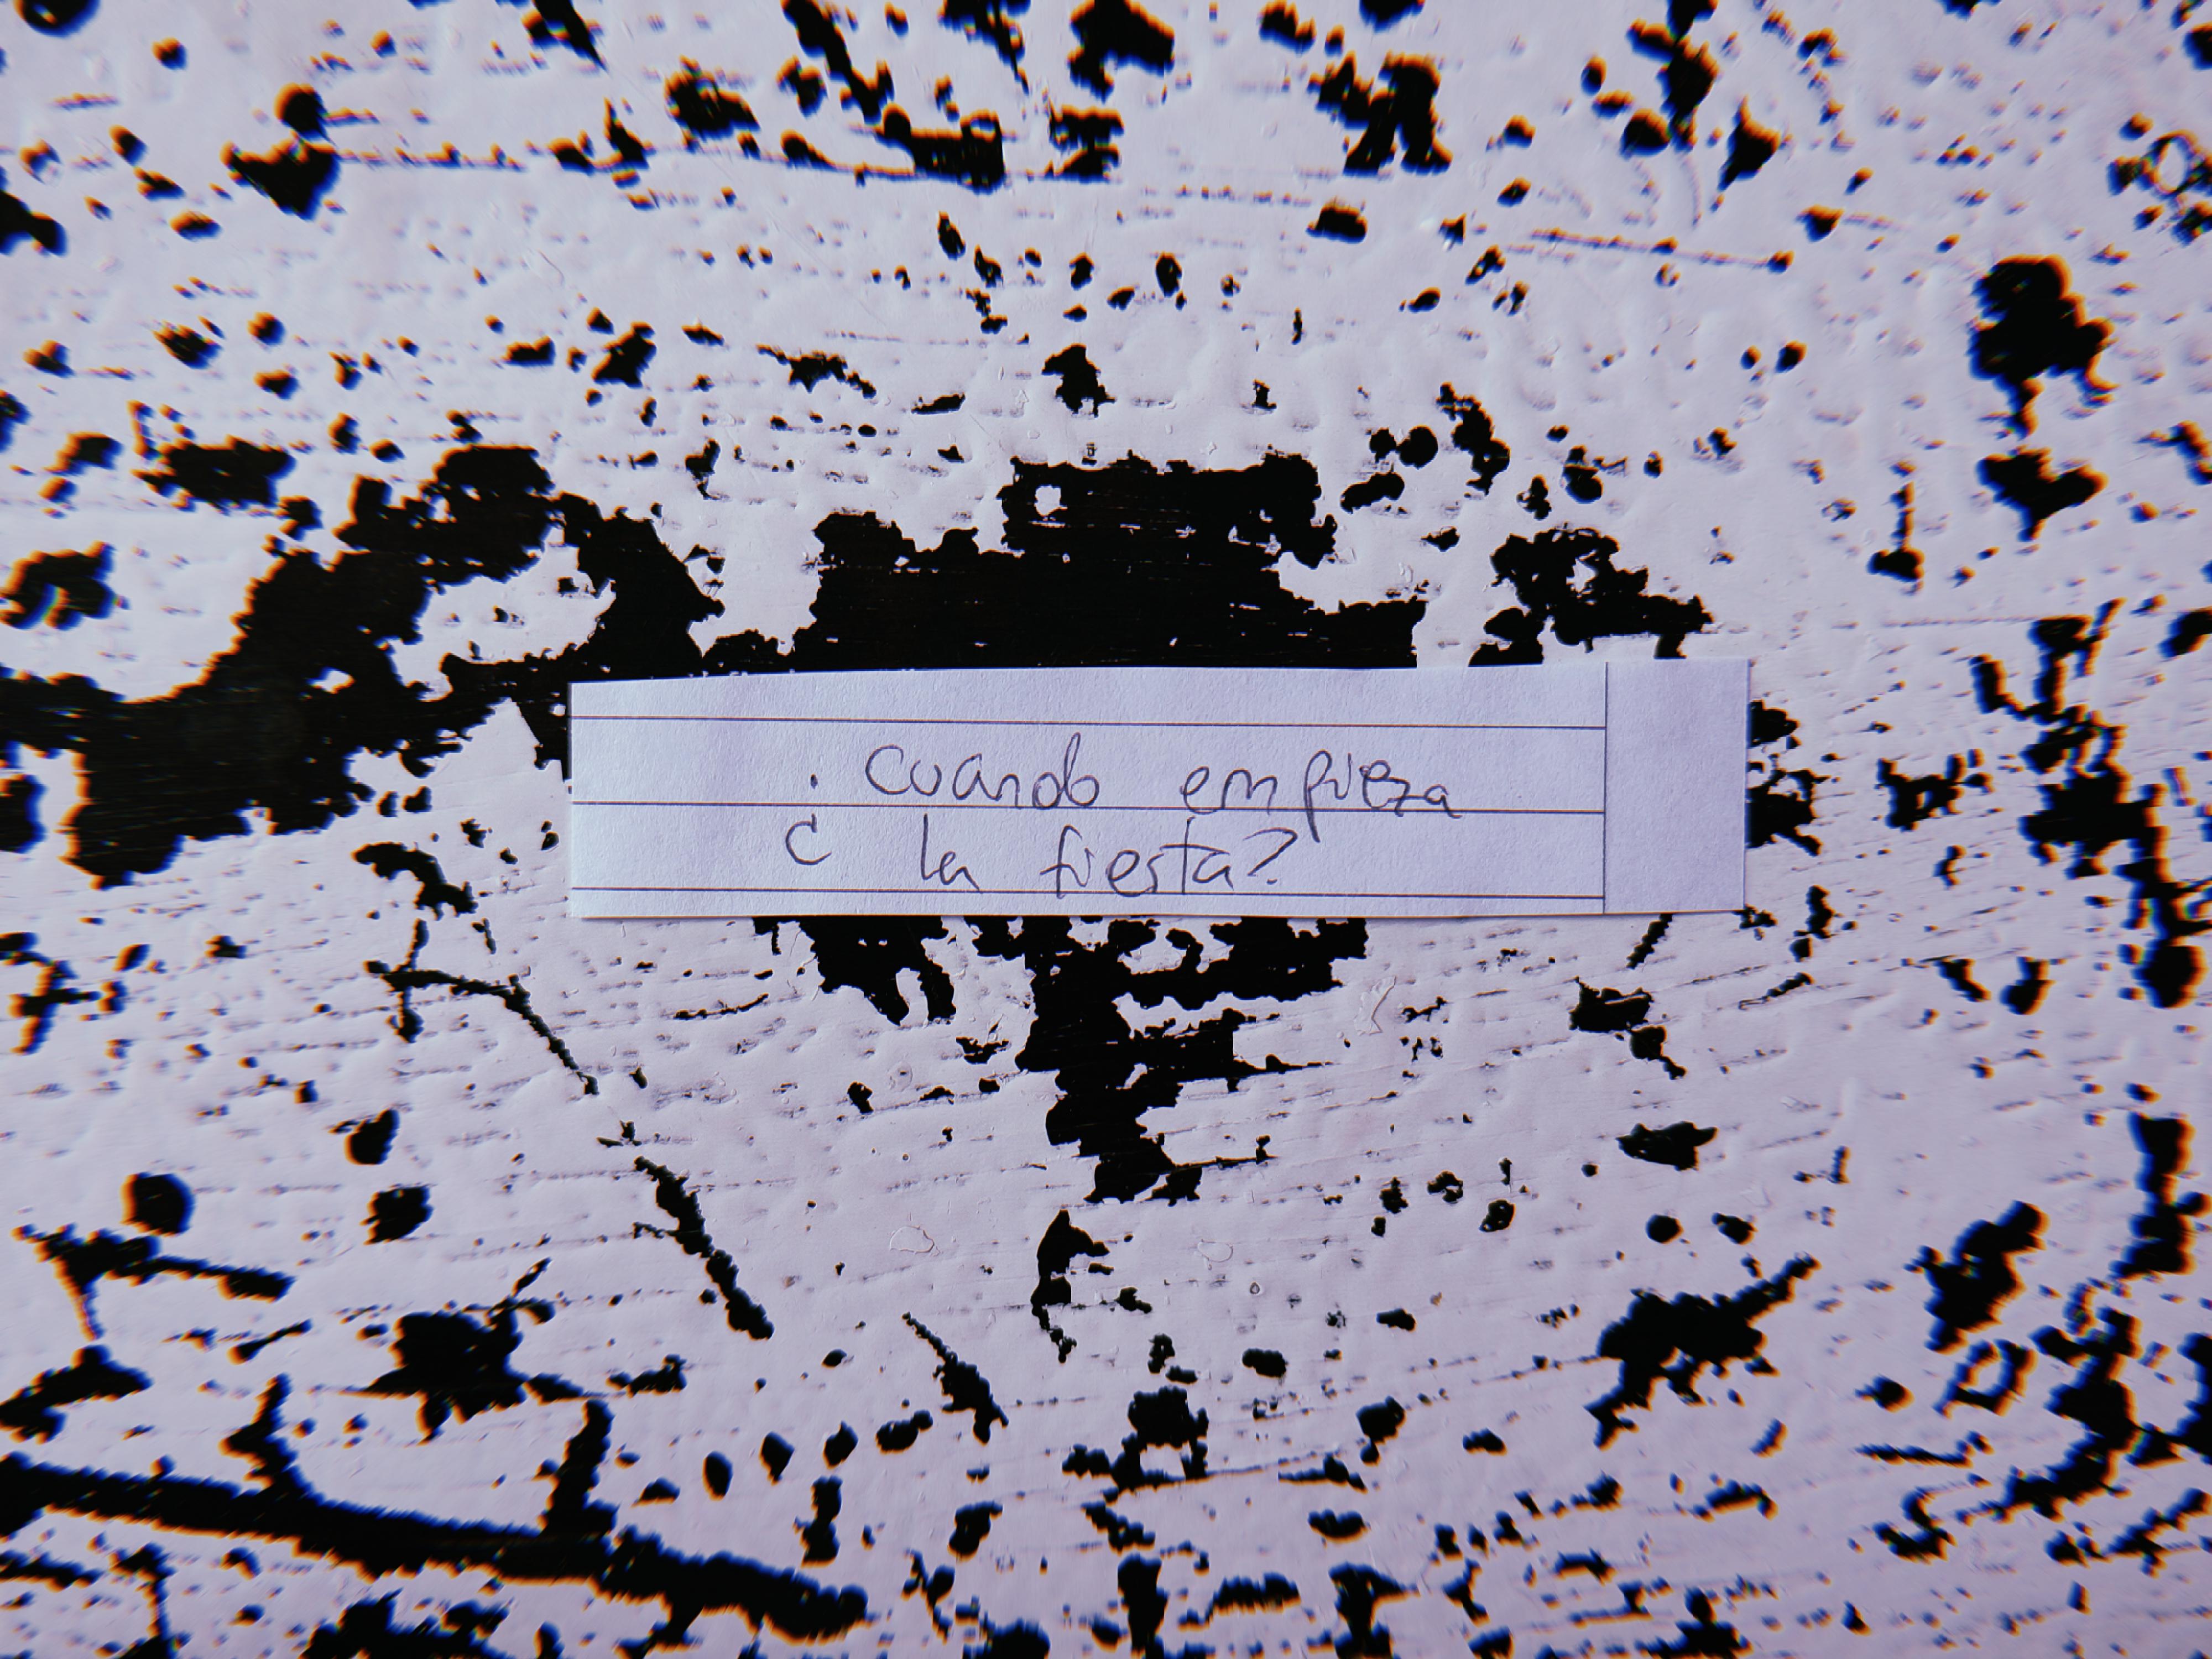 ¿Cuando empieza
la fiesta?